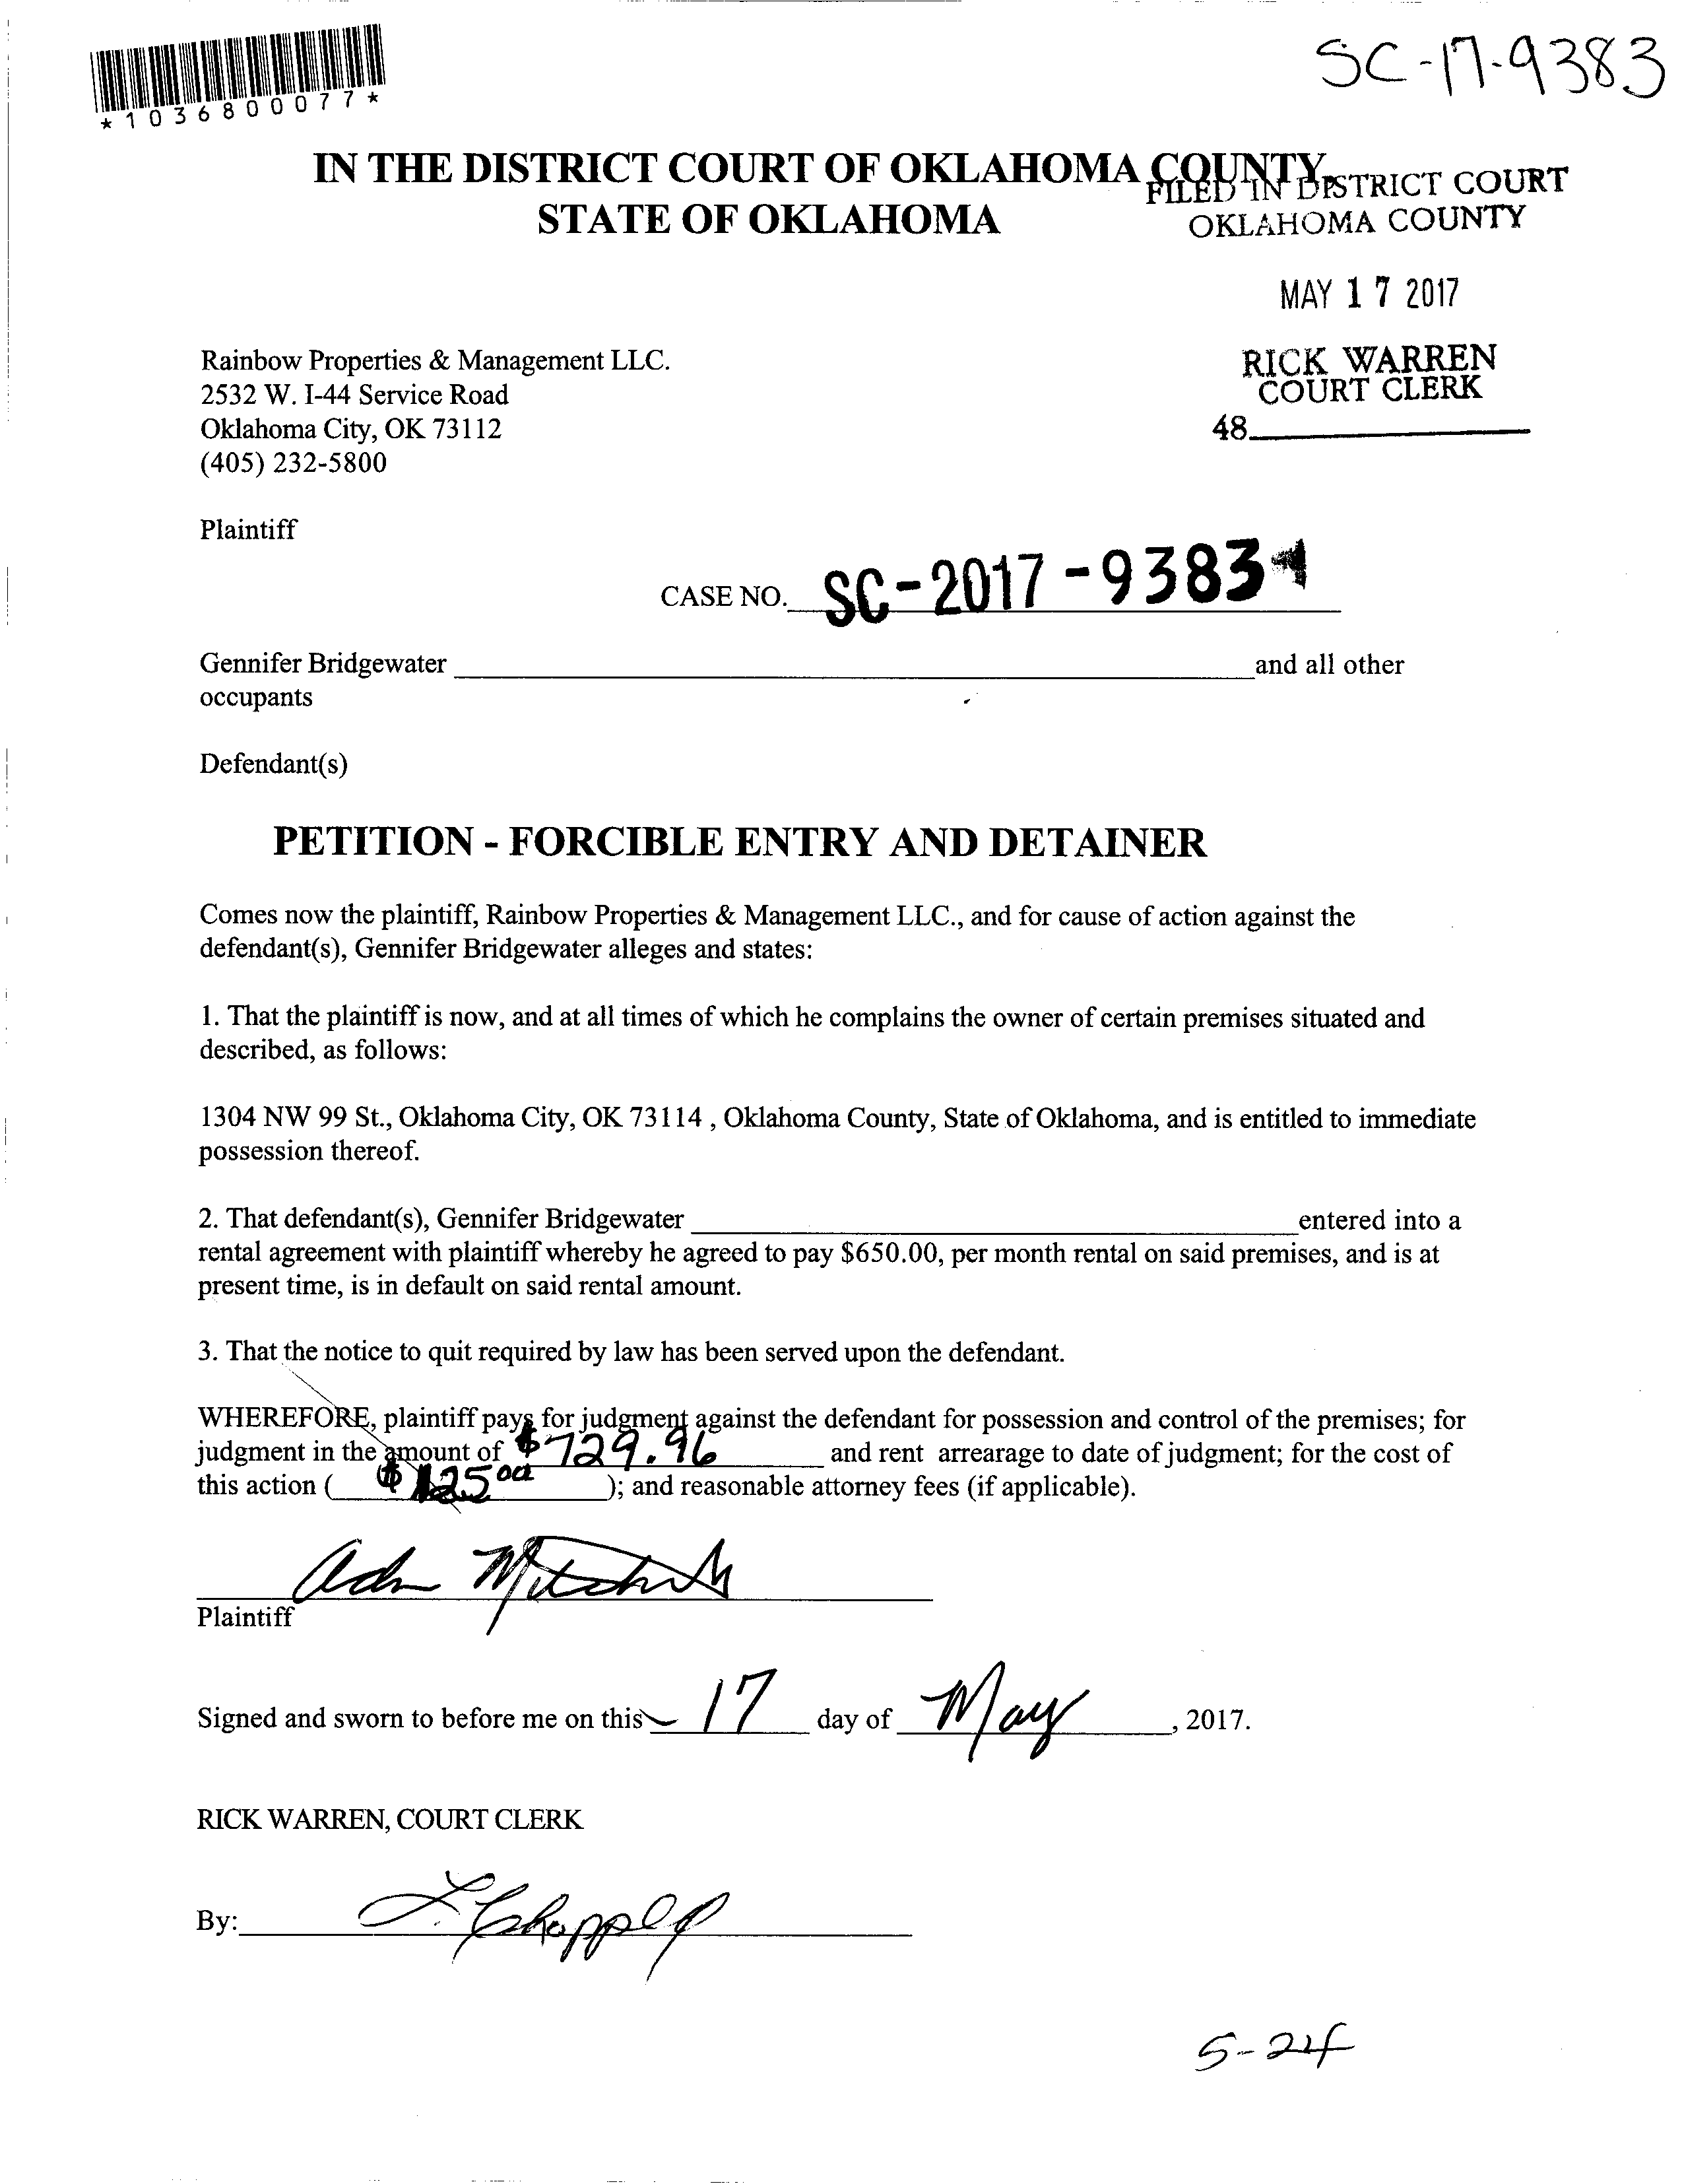 SC-17-9383
*1036800077*
IN THE DISTRICT COURT OF OKLAHOMA COUNTY
STATE OF OKLAHOMA
FILED IN DISTRICT COURT
OKLAHOMA COUNTY
MAY 17 2017
RICK WARREN
COURT CLERK
48
Rainbow Properties & Management LLC.
2532 W. I-44 Service Road
Oklahoma City, OK 73112
(405) 232-5800
Plaintiff
CASE NO. SC-2017-9383
Gennifer Bridgewater and all other
occupants
Defendant(s)
PETITION - FORCIBLE ENTRY AND DETAINER
Comes now the plaintiff, Rainbow Properties & Management LLC., and for cause of action against the
defendant(s), Gennifer Bridgewater alleges and states:
1. That the plaintiff is now, and at all times of which he complains the owner of certain premises situated and
described, as follows:
1304 NW 99 St., Oklahoma City, OK 73114 , Oklahoma County, State of Oklahoma, and is entitled to immediate
possession thereof.
2. That defendant(s), Gennifer Bridgewater entered into a
rental agreement with plaintiff whereby he agreed to pay $650.00, per month rental on said premises, and is at
present time, is in default on said rental amount.
3. That the notice to quit required by law has been served upon the defendant.
WHEREFORE, plaintiff pays for judgment against the defendant for possession and control of the premises; for
judgment in the amount of $729.96 and rent arrearage to date of judgment; for the cost of
this action ( $125 00 ); and reasonable attorney fees (if applicable).
Plaintiff
Signed and sworn to before me on this 17 day of May, 2017.
RICK WARREN, COURT CLERK
By:
5-24